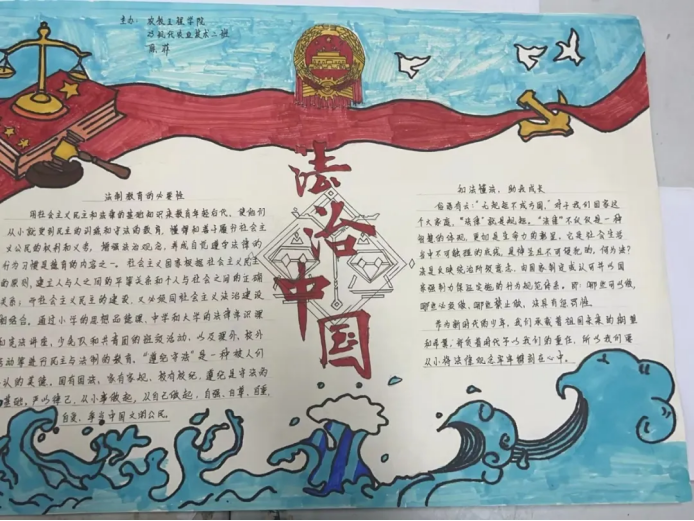 主办：农牧工程学院
法治中国
法制教育的必要性
用社会主义民主和法律的基础知识来教育年轻台代，使他们
从小就受到民主的训练和守法的教育，懂得和善于履行社会主
义公民的权利和义务，增强法治观念，养成自觉遵守法律的
行为习惯是德育的内容之一。社会主义国家根据社会主义民主
的原则，建立人与人之间的平等关系和个人与社会之间的正确
关系；开社会主义民主的建设，又必须同社会主义法治建设
相结合，通过小学的思想品德课，中学和大学的法律常识课
和宪法讲座，少先队和共青团的班级活动，以及课外、校外
活动等进行民主与法制的教育，“遵纪守法”是一种被人们
认的美德，国有国法，家有家规，校有校纪，遵纪是守法的
基础。严以律己，从小事做起，从自己做起，自强、自尊、自重、
自爱，争当中国文明公民。
知法懂法，助我成长
俗语有云：“无规矩不成方圆，”对于我们国家这
个大家庭，“法律”就是规矩。“法律”不仅仅是一种
智慧的体现，更如是生命力的彰显。它是社会生活
当中不可触碰的底线，是神圣且不可侵犯的。何为法？
法是反映统治阶级意志，由国家制定或认可并以国
家强制力保证实施的行为规范体系。即：哪些可以做，
哪些必须做，哪些禁止做，法具有惩罚性。
作为新时代的少年，我们承载着祖国未来的期望
从小将法律观念牢牢镌刻在心中。